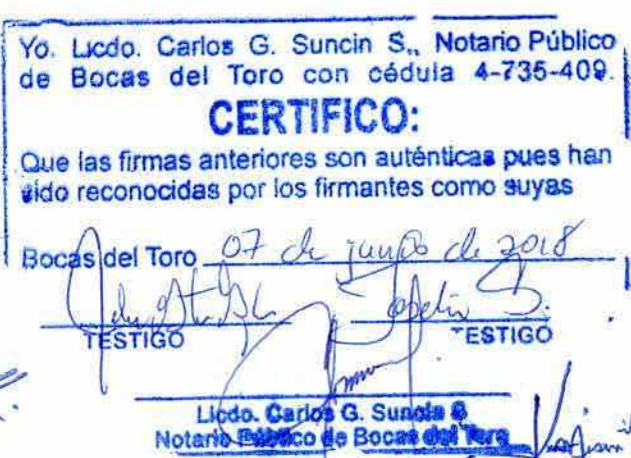 Yo. Licdo. Carlos G. Suncin S., Notario Público
de Bocas del Toro con cédula 4-735-409.
CERTIFICO:
Que las firmas anteriores son auténticas pues han
sido reconocidas por los firmantes como suyas
Bocas del Toro 07 de junio de 2018
TESTIGO TESTIGO
Licdo. Carlos G. Suncin S
Notario Público de Bocas del Toro